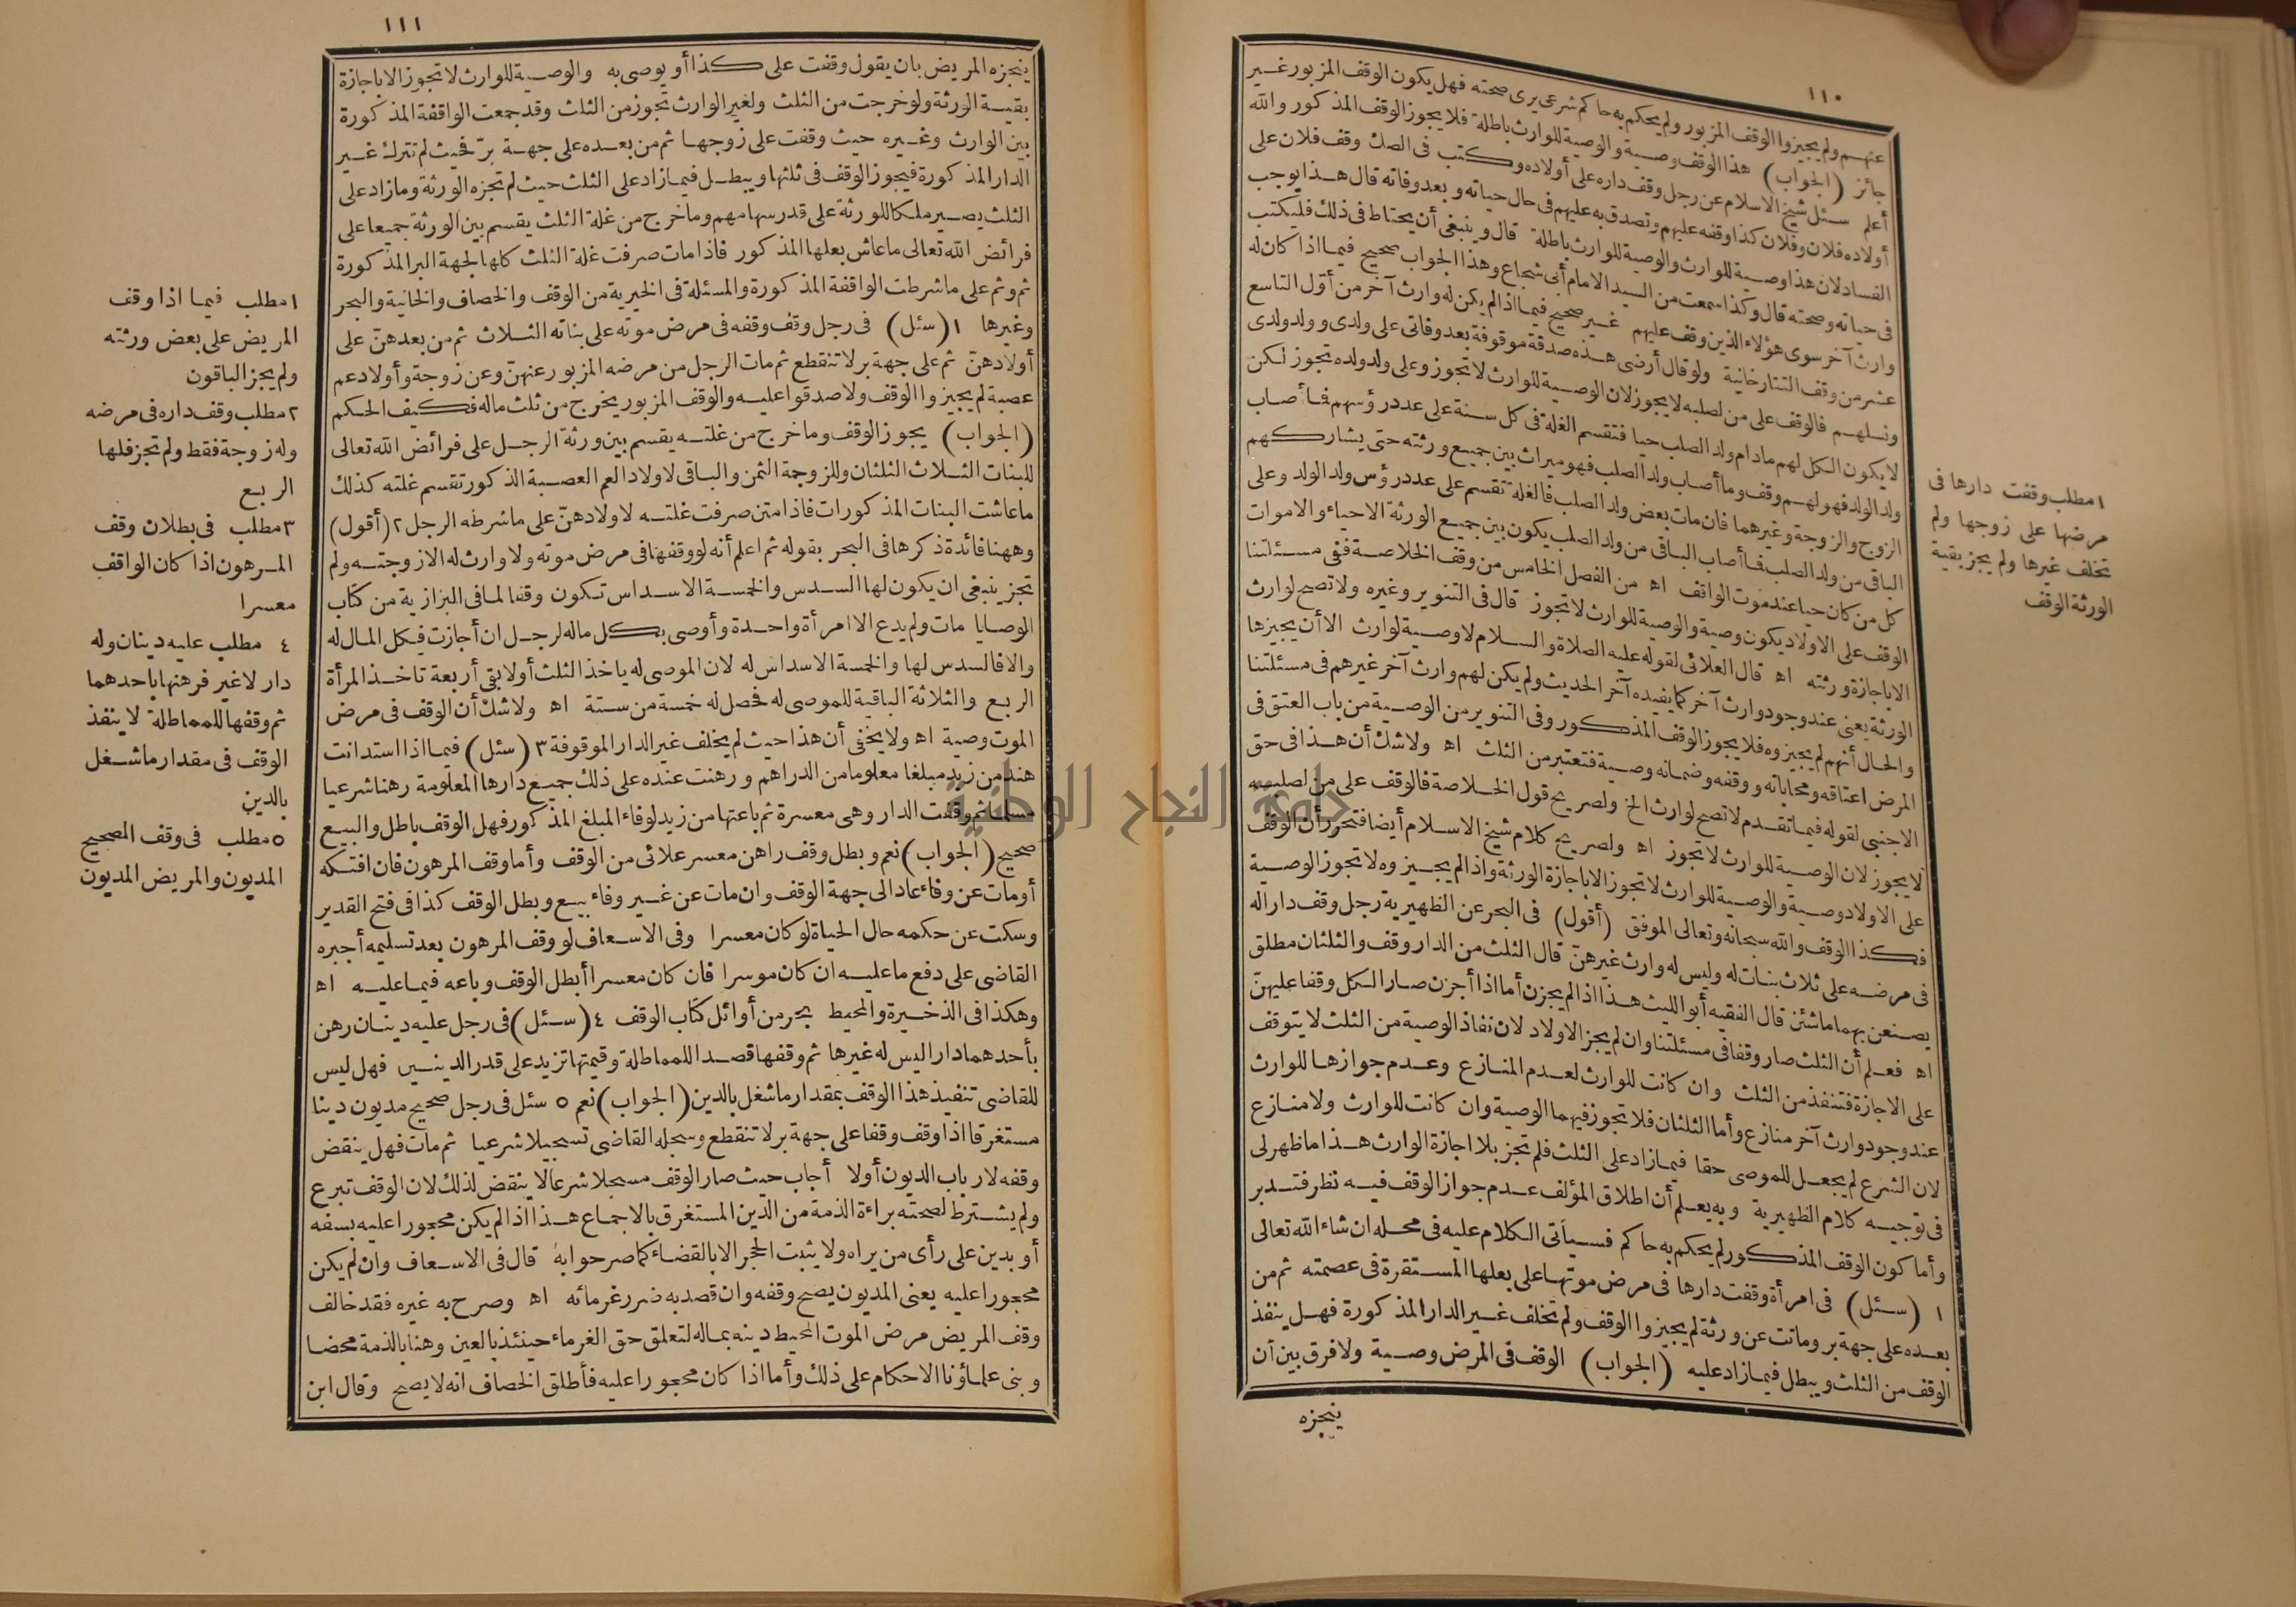 ١١٠
عنهم ولم يجيزوا الوقف المزبور ولم يحكم به حاكم شرعى يرى صحته فهل يكون الوقف المزبور غير
جائز (الجواب) هذا الوقف وصية والوصية للوارث باطلة فلا يجوز الوقف المذكور والله
أعلم سئل شيخ الاسلام عن رجل وقف داره على أولاده وكتب فى الصك وقف فلان على
أولاده فلان وفلان كذا وقفه عليهم وتصدق به عليهم فى حال حياته وبعد وفاته قال هذا يوجب
الفساد لان هذا وصية للوارث والوصية للوارث باطلة قال وينبغى أن يحتاط فى ذلك فليكتب
فى حياته وصحته قال وكذا سمعت من السيد الامام أبى شجاع وهذا الجواب صحيح فيما اذا كان له
وارث آخر سوى هؤلاء الذين وقف عليهم غير صحيح فيما اذا لم يكن له وارث آخر من أول التاسع
عشر من وقف التتارخانية ولو قال أرضى هذه صدقة موقوفة بعد وفاتى على ولدى وولد ولدى
ونسلهم فالوقف على من لصلبه لا يجوز لان الوصية للوارث لا تجوز وعلى ولد ولده تجوز لكن
لا يكون الكل لهم مادام ولد الصلب حيا فتقسم الغلة فى كل سنة على عدد رؤسهم فما أصاب
ولد الولد فهو لهم وقف وما أصاب ولد الصلب فهو ميراث بين جميع ورثته حتى يشاركهم
الزوج والزوجة وغيرهما فان مات بعض ولد الصلب فالغلة تقسم على عدد رؤس ولد الولد وعلى
الباقى من ولد الصلب فما أصاب الباقى من ولد الصلب يكون بين جميع الورثة الاحياء والاموات
كل من كان حيا عند موت الواقف اه من الفصل الخامس من وقف الخلاصة ففى مسئلتنا
الوقف على الاولاد يكون وصية والوصية للوارث لا تجوز قال فى التنوير وغيره ولا تصح لوارث
الا باجازة ورثته اه قال العلائى لقوله عليه الصلاة والسلام لا وصية لوارث الا أن يجيزها
الورثة يعنى عند وجود وارث آخر كما يفيده آخر الحديث ولم يكن لهم وارث آخر غيرهم فى مسئلتنا
والحال أنهم لم يجيزوه فلا يجوز الوقف المذكور وفى التنوير من الوصية من باب العتق فى
المرض اعتاقه ومحاباته ووقفه وضمانه وصية فتعتبر من الثلث اه ولا شك أن هذا فى حق
الاجنبى لقوله فيما تقدم لا تصح لوارث الخ ولصريح قول الخلاصة فالوقف على من لصلبه
لا يجوز لان الوصية للوارث لا تجوز اه ولصريح كلام شيخ الاسلام أيضا فتحرر أن الوقف
على الاولاد وصية والوصية للوارث لا تجوز الا باجازة الورثة واذا لم يجيزوه لا تجوز الوصية
فكذا الوقف والله سبحانه وتعالى الموفق (أقول) فى البحر عن الظهيرية رجل وقف دارا له
فى مرضه على ثلاث بنات له وليس له وارث غيرهن قال الثلث من الدار وقف والثلثان مطلق
يصنعن بهما ماشئن قال الفقيه أبو الليث هذا اذا لم يجزن أما اذا أجزن صار الكل وقفا عليهنّ
اه فعلم أن الثلث صار وقفا فى مسئلتنا وان لم يجز الاولاد لان نفاذ الوصية من الثلث لا يتوقف
على الاجازة فتنفذ من الثلث وان كانت للوارث لعدم المنازع وعدم جوازها للوارث
عند وجود وارث آخر منازع وأما الثلثان فلا تجوز فيهما الوصية وان كانت للوارث ولا منازع
لان الشرع لم يجعل للموصى حقا فيما زاد على الثلث فلم تجز بلا اجازة الوارث هذا ما ظهر لى
فى توجيه كلام الظهيرية وبه يعلم أن اطلاق المؤلف عدم جواز الوقف فيه نظر فتدبر
وأما كون الوقف المذكور لم يحكم به حاكم فسيأتى الكلام عليه فى محله ان شاء الله تعالى
١ (سئل) فى امرأة وقفت دارها فى مرض موتها على بعلها المستقرة فى عصمته ثم من
بعده على جهة بر وماتت عن ورثة لم يجيزوا الوقف ولم تخلف غير الدار المذكورة فهل ينفذ
الوقف من الثلث ويبطل فيما زاد عليه (الجواب) الوقف فى المرض وصية ولا فرق بين أن
ينجزه
١ مطلب وقفت دارها فى
مرضها على زوجها ولم
تخلف غيرها ولم يجز بقية
الورثة الوقف
١١١
ينجزه المريض بان يقول وقفت على كذا أو يوصى به والوصية للوارث لا تجوز الا باجازة
بقية الورثة ولو خرجت من الثلث ولغير الوارث تجوز من الثلث وقد جمعت الواقفة المذكورة
بين الوارث وغيره حيث وقفت على زوجها ثم من بعده على جهة برّ فحيث لم تترك غير
الدار المذكورة فيجوز الوقف فى ثلثها ويبطل فيما زاد على الثلث حيث لم تجزه الورثة وما زاد على
الثلث يصير ملكا للورثة على قدر سهامهم وما خرج من غلة الثلث يقسم بين الورثة جميعا على
فرائض الله تعالى ما عاش بعلها المذكور فاذا مات صرفت غلة الثلث كلها لجهة البر المذكورة
ثم وثم على ما شرطت الواقفة المذكورة والمسئلة فى الخيرية من الوقف والخصاف والخانية والبحر
وغيرها ١ (سئل) فى رجل وقف وقفه فى مرض موته على بناته الثلاث ثم من بعدهنّ على
أولادهنّ ثم على جهة بر لا تنقطع ثم مات الرجل من مرضه المزبور عنهنّ وعن زوجة وأولاد عم
عصبة لم يجيزوا الوقف ولا صدقوا عليه والوقف المزبور يخرج من ثلث ماله فكيف الحكم
(الجواب) يجوز الوقف وما خرج من غلته يقسم بين ورثة الرجل على فرائض الله تعالى
للبنات الثلاث الثلثان وللزوجة الثمن والباقى لاولاد العم العصبة الذكور تقسم غلته كذلك
ما عاشت البنات المذكورات فاذا متن صرفت غلته لاولادهنّ على ما شرطه الرجل ٢ (أقول)
وههنا فائدة ذكرها فى البحر بقوله ثم اعلم أنه لو وقفها فى مرض موته ولا وارث له الا زوجته ولم
تجز ينبغى ان يكون لها السدس والخمسة الاسداس تكون وقفا لما فى البزازية من كتاب
الوصايا مات ولم يدع الا امرأة واحدة وأوصى بكل ماله لرجل ان أجازت فكل المال له
والا فالسدس لها والخمسة الاسداس له لان الموصى له ياخذ الثلث أولا بقى أربعة تاخذ المرأة
الربع والثلاثة الباقية للموصى له فحصل له خمسة من ستة اه ولا شك أن الوقف فى مرض
الموت وصية اه ولا يخفى أن هذا حيث لم يخلف غير الدار الموقوفة ٣ (سئل) فيما اذا استدانت
هند من زيد مبلغا معلوما من الدراهم ورهنت عنده على ذلك جميع دارها المعلومة رهنا شرعيا
مسلما ثم وقفت الدار وهى معسرة ثم باعتها من زيد لوفاء المبلغ المذكور فهل الوقف باطل والبيع
صحيح (الجواب) نعم وبطل وقف راهن معسر علائى من الوقف وأما وقف المرهون فان افتكه
أو مات عن وفاء عاد الى جهة الوقف وان مات عن غير وفاء بيع وبطل الوقف كذا فى فتح القدير
وسكت عن حكمه حال الحياة لو كان معسرا وفى الاسعاف لو وقف المرهون بعد تسليمه أجبره
القاضى على دفع ما عليه ان كان موسرا فان كان معسرا أبطل الوقف وباعه فيما عليه اه
وهكذا فى الذخيرة والمحيط بحر من أوائل كتاب الوقف ٤ (سئل) فى رجل عليه دينان رهن
بأحدهما دارا ليس له غيرها ثم وقفها قصدا للمماطلة وقيمتها تزيد على قدر الدينين فهل ليس
للقاضى تنفيذ هذا الوقف بمقدار ما شغل بالدين (الجواب) نعم ٥ سئل فى رجل صحيح مديون دينا
مستغرقا اذا وقف وقفا على جهة بر لا تنقطع وسجله القاضى تسجيلا شرعيا ثم مات فهل ينقض
وقفه لارباب الديون أولا أجاب حيث صار الوقف مسجلا شرعا لا ينقض لذلك لان الوقف تبرع
ولم يشترط لصحته براءة الذمة من الدين المستغرق بالاجماع هذا اذا لم يكن محجورا عليه بسفه
أو بدين على رأى من يراه ولا يثبت الحجر الا بالقضاء كما صرحوا به قال فى الاسعاف وان لم يكن
محجورا عليه يعنى المديون يصح وقفه وان قصد به ضرر غرمائه اه وصرح به غيره فقد خالف
وقف المريض مرض الموت المحيط دينه بماله لتعلق حق الغرماء حينئذ بالعين وهنا بالذمة محضا
وبنى علماؤنا الاحكام على ذلك وأما اذا كان محجورا عليه فأطلق الخصاف انه لا يصح وقال ابن
١ مطلب فيما اذا وقف
المريض على بعض ورثته
ولم يجز الباقون
٢ مطلب وقف داره فى مرضه
وله زوجة فقط ولم تجز فلها
الربع
٣ مطلب فى بطلان وقف
المرهون اذا كان الواقف
معسرا
٤ مطلب عليه دينان وله
دار لا غير فرهنها باحدهما
ثم وقفها للمماطلة لا ينفذ
الوقف فى مقدار ما شغل
بالدين
٥ مطلب فى وقف الصحيح
المديون والمريض المديون
جامعة النجاح الوطنية